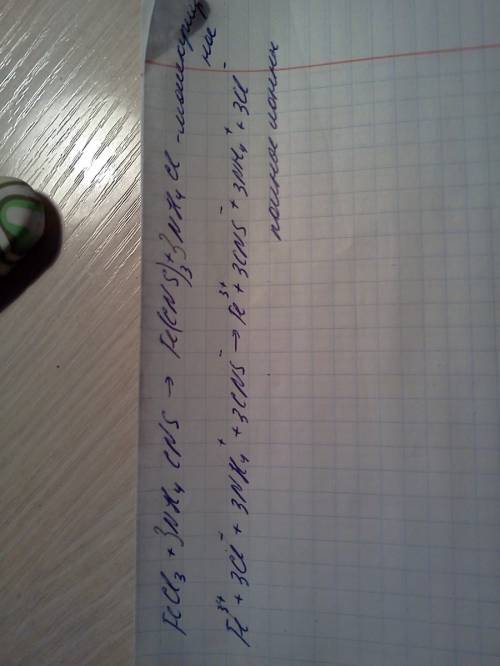 FeCl₃ + 3NH₄CNS → Fe(CNS)₃ + 3NH₄Cl -
Fe³⁺ + 3Cl⁻ + 3NH₄⁺ + 3CNS⁻ → Fe³⁺ + 3CNS⁻ + 3NH₄⁺ + 3Cl⁻
полное ионное